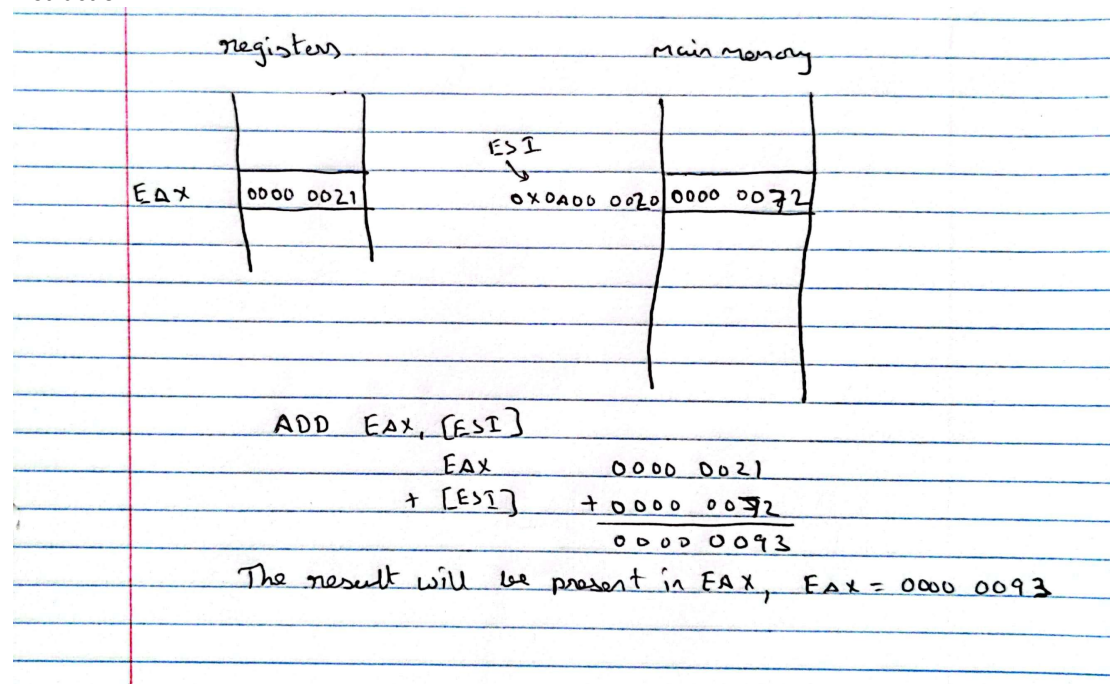 registers main memory
ESI
EAX 0000 0021 0X0A00 0020 0000 0072
ADD EAX, [ESI]
EAX 0000 0021
+ [ESI] + 0000 0072
0000 0093
The result will be present in EAX, EAX = 0000 0093